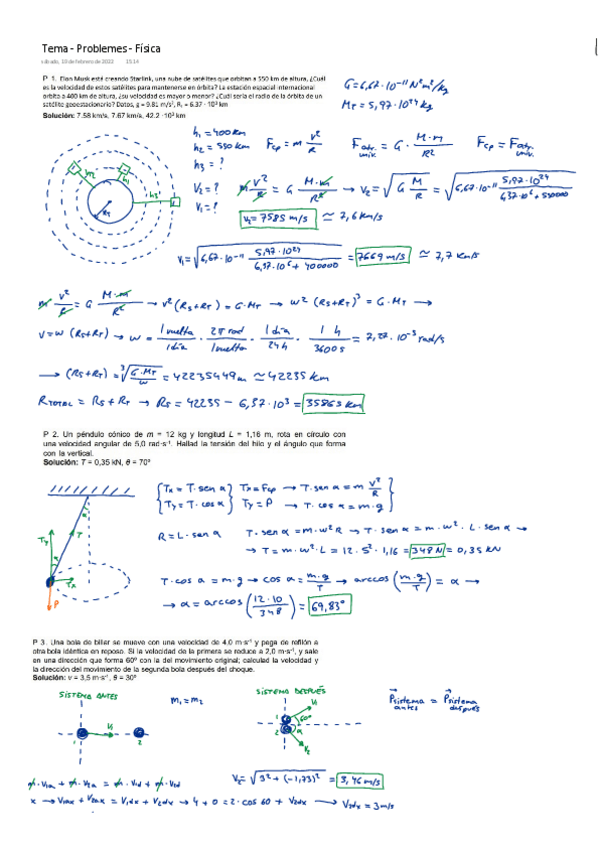 Tema - Problemes - Física
sábado, 18 de febrero de 2023 15:14
P 1. Elon Musk esté creando Starlink, una nube de satélites que orbitan a 550 km de altura, ¿Cuál
es la velocidad de estos satélites para mantenerse en órbita? La estación espacial internacional
orbita a 400 km de altura, ¿su velocidad es mayor o menor? ¿Cuál sería el radio de la órbita de un
satélite geoestacionario? Datos, g = 9.81 m/s², Rₜ = 6.37 · 10³ km
Solución: 7.58 km/s, 7.67 km/s, 42.2 ·10³ km
G = 6,67·10⁻¹¹ N²m²/kg
M_T = 5,97·10²⁴ kg
h₁ = 400 km
h₂ = 550 km
h₃ = ?
V₂ = ?
V₁ = ?
F_cp = m v²/R
F_atr. univ. = G · M·m/R²
F_cp = F_atr. univ.
m v²/R = G M·m/R² → V₂ = √(G M/R) = √(6,67·10⁻¹¹ 5,97·10²⁴/(6,37·10⁶ + 550000))
V₂ = 7585 m/s ≃ 7,6 km/s
V₁ = √(6,67·10⁻¹¹ · 5,97·10²⁴/(6,37·10⁶ + 400000)) = 7669 m/s ≃ 7,7 km/s
h₂ h₁ h₃ R_T
m v²/R = G M·m/R² → v²(R_S+R_T) = G·M_T → w² (R_S+R_T)³ = G·M_T →
V = w (R_S+R_T) → w = 1 vuelta/1 día · 2π rad/1 vuelta · 1 día/24 h · 1 h/3600 s = 7,27·10⁻⁵ rad/s
→ (R_S+R_T) = ³√(G·M_T/w) = 42235449 m ≃ 42235 km
R_TOTAL = R_S + R_T → R_S = 42235 − 6,37·10³ = 35865 km
P 2. Un péndulo cónico de m = 12 kg y longitud L = 1,16 m, rota en círculo con
una velocidad angular de 5,0 rad·s⁻¹. Hallad la tensión del hilo y el ángulo que forma
con la vertical.
Solución: T = 0,35 kN, θ = 70º
Tx = T·sen α Tx = F_cp → T·sen α = m v²/R
Ty = T·cos α Ty = P → T·cos α = m·g
R = L·sen α T·sen α = m·w²R → T·sen α = m·w²·L·sen α →
→ T = m·w²·L = 12·5²·1,16 = 348 N = 0,35 kN
T·cos α = m·g → cos α = m·g/T → arccos (m·g/T) = α →
→ α = arccos (12·10/348) = 69,83°
α Ty T α Tx P
P 3. Una bola de billar se mueve con una velocidad de 4,0 m·s⁻¹ y pega de refilón a
otra bola idéntica en reposo. Si la velocidad de la primera se reduce a 2,0 m·s⁻¹, y sale
en una dirección que forma 60º con la del movimiento original; calculad la velocidad y
la dirección del movimiento de la segunda bola después del choque.
Solución: v = 3,5 m·s⁻¹, θ = 30º
SISTEMA ANTES
m₁ = m₂
SISTEMA DESPUÉS
P sistema antes = P sistema después
1 V₁ 2
1 V₁ 60° 2 α V₂
m·V₁a + m·V₂a = m·V₁d + m·V₂d
V₂ = √(3² + (−1,73)²) = 3,46 m/s
x → V₁ax + V₂ax = V₁dx + V₂dx → 4 + 0 = 2·cos 60 + V₂dx → V₂dx = 3 m/s